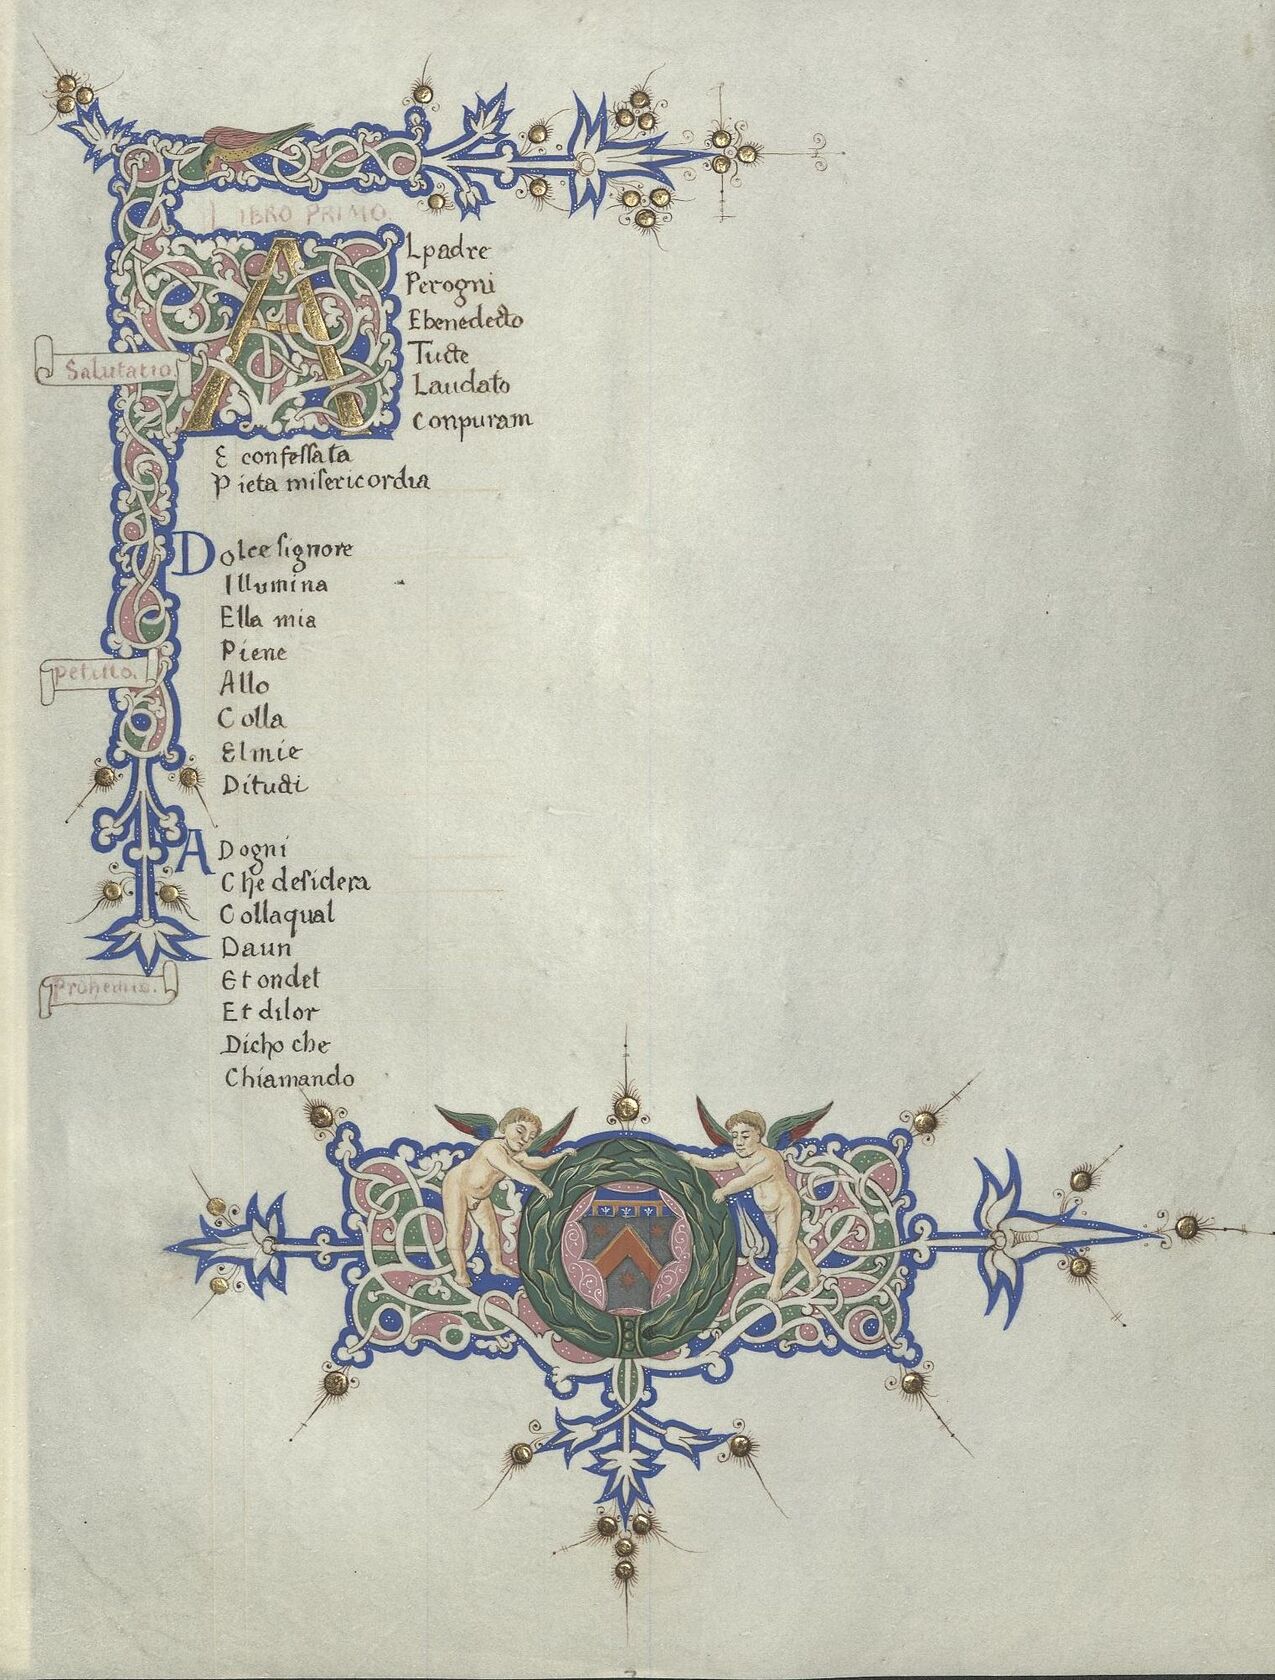 LIBRO PRIMO.
ALpadre
Perogni
Ebenedecto
Tucte
Laudato
Conpuram
E confessata
Pieta misericordia
Salutatio.
Dolce signore
Illumina
Ella mia
Piene
Allo
Colla
Elmie
Ditucti
Petitio.
ADogni
Che desidera
Collaqual
Daun
Et ondet
Et dilor
Dicho che
Chiamando
Prohemio.